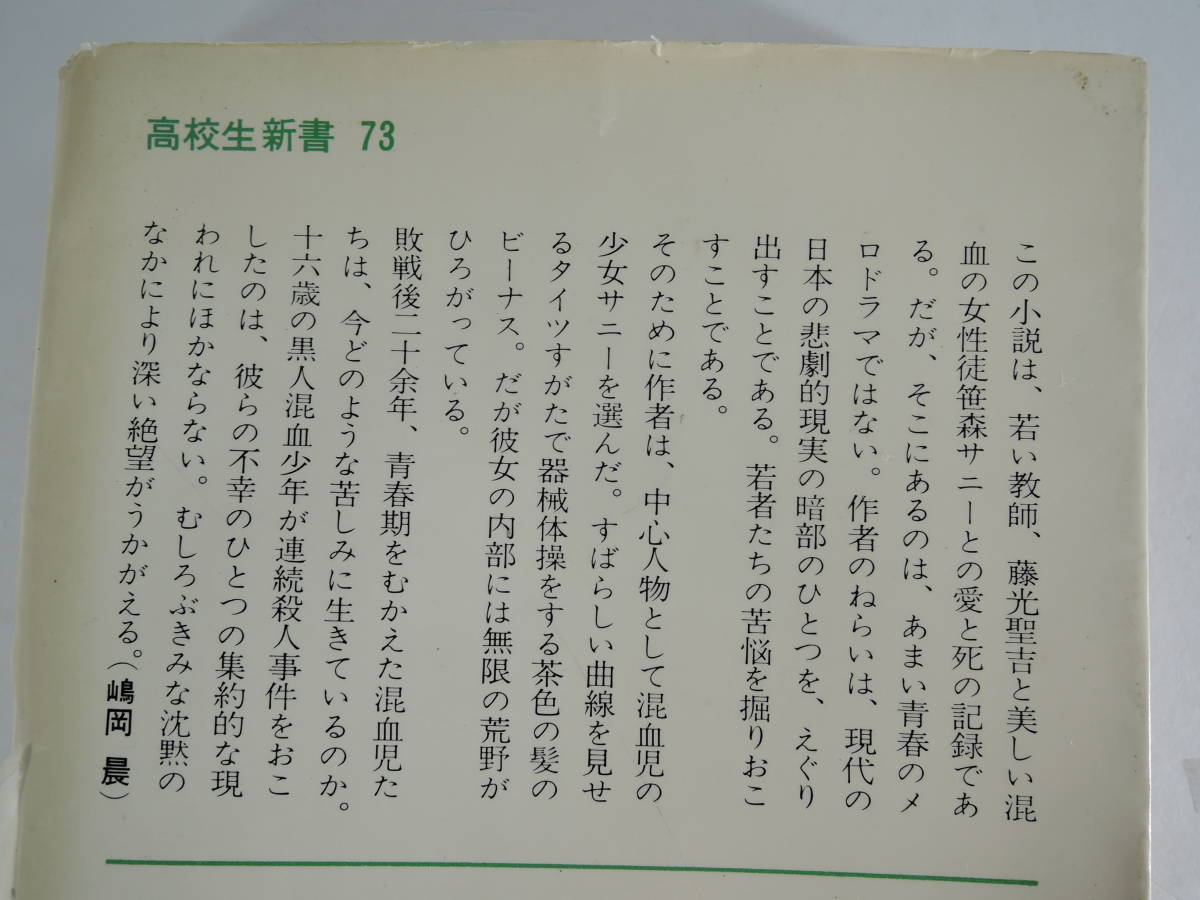 高校生新書 73
この小説は、若い教師、藤光聖吉と美しい混
血の女性徒笹森サニーとの愛と死の記録であ
る。だが、そこにあるのは、あまい青春のメ
ロドラマではない。作者のねらいは、現代の
日本の悲劇的現実の暗部のひとつを、えぐり
出すことである。若者たちの苦悩を掘りおこ
すことである。
そのために作者は、中心人物として混血児の
少女サニーを選んだ。すばらしい曲線を見せ
るタイツすがたで器械体操をする茶色の髪の
ビーナス。だが彼女の内部には無限の荒野が
ひろがっている。
敗戦後二十余年、青春期をむかえた混血児た
ちは、今どのような苦しみに生きているのか。
十六歳の黒人混血少年が連続殺人事件をおこ
したのは、彼らの不幸のひとつの集約的な現
われにほかならない。むしろぶきみな沈黙の
なかにより深い絶望がうかがえる。(嶋岡 晨)